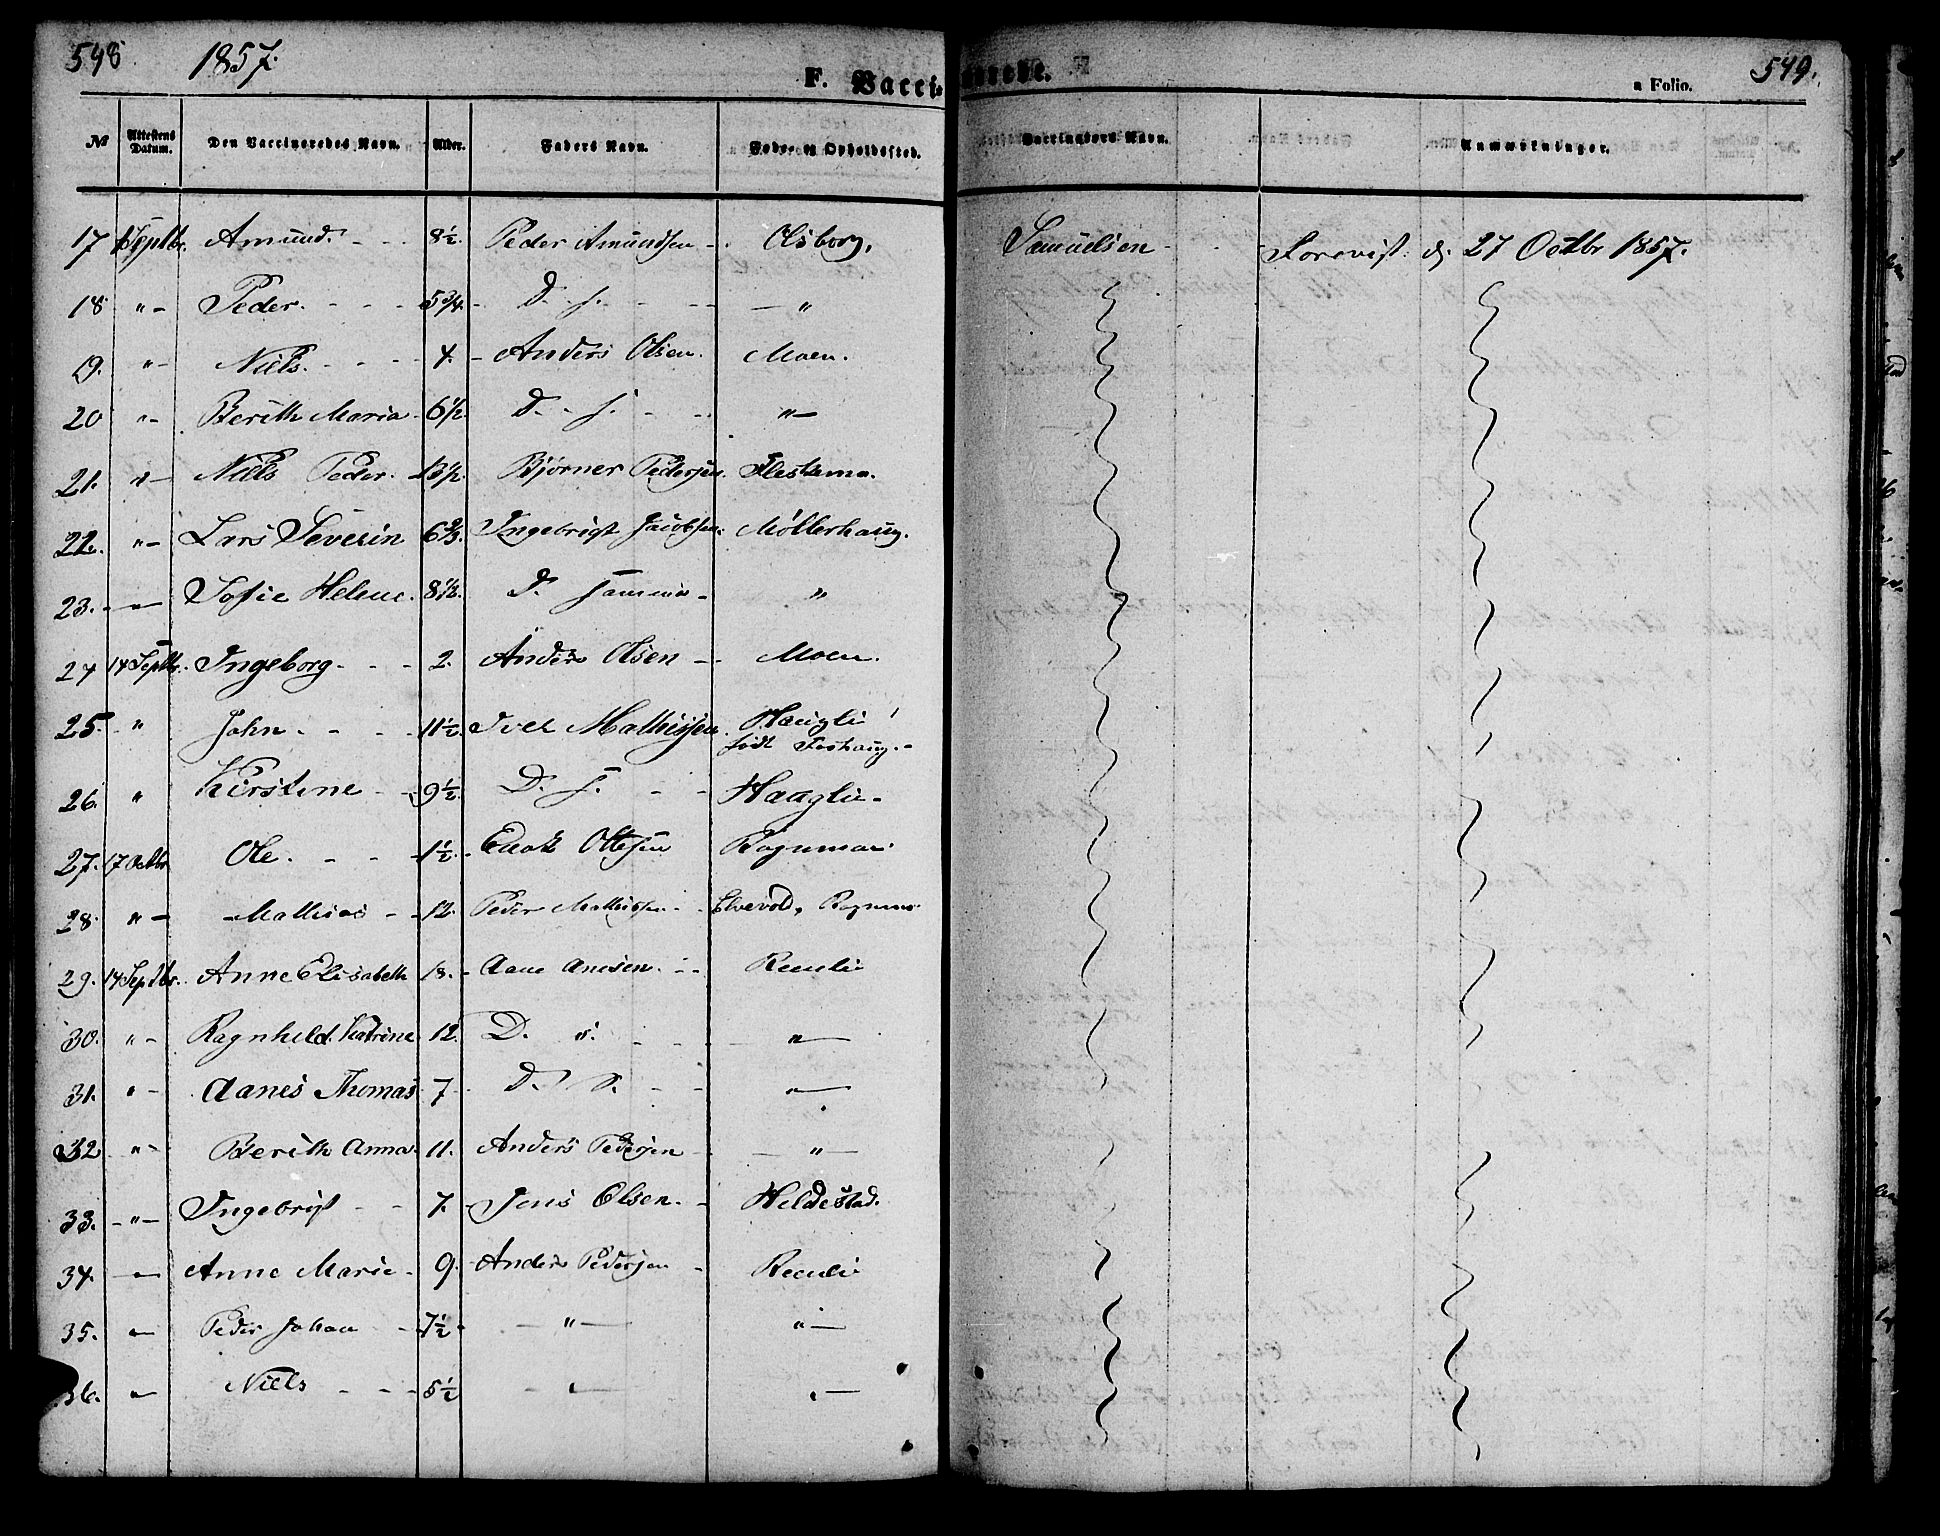 548. 1857. F. Vacci-
№ Attestens Datum. Den Vaccineredes Navn. Alder. Faders Navn. Føde- og Opholdssted.
17 Septbr. Amund. - - 8½. Peder Amundsen - Olsborg.
18 " - Peder. - - - 5¾. - D. s. - - - — "
19. " - Niels. - - - 4. - Anders Olsen. Moen.
20 " - Berith Maria. 6½ D. - s. - - " —
21. " - Niels Peder. - 13½. Bjørner Pedersen. Flestemo.
22. " - Lars Severin 6⅔. Ingebrigt Jacobsen. Møllerhaug.
23. - " - Sofie Helene. 8½. D. samme - "
24 14 Septbr. Ingeborg - - - 2. Anders Olsen - Moen.
25. - " John. - - - 11½. Iver Mathissen. Haugli
født Foshaug. -
26. " Kirstine - - 9½. D. s. - - Haaglie -
27. 17 Octbr Ole. - - - 1½. - Enok Ottesen Rognmo
28. " - - Mathias - - 12. Peder Mathissen - - Elvevold, Rognmo
29. 14 Septbr. Anne Elisabeth 18. - Aane Anesen. - - Reenli
30. " - Ragnhild. Katrine. 12. D. s. - - " —
31. " - Aanes Thomas 7 - D. s. - - " —
32 " - Berith Anna. 11. Anders Pedersen - — " —
33. - " - Ingebrigt - - 7. - Jens Olsen. - Heldestad.
34. - " Anne Marie - 9. - Anders Pedersen - Reenli
35. " - Peder Johan - 7½ - — " — " —
36. " - Niels - - - 5½ - " — " —
549.
a Folio.
Vaccinators Navn. Anmærkninger.
Samuelsen - Forevist d. 27 Octbr 1857.